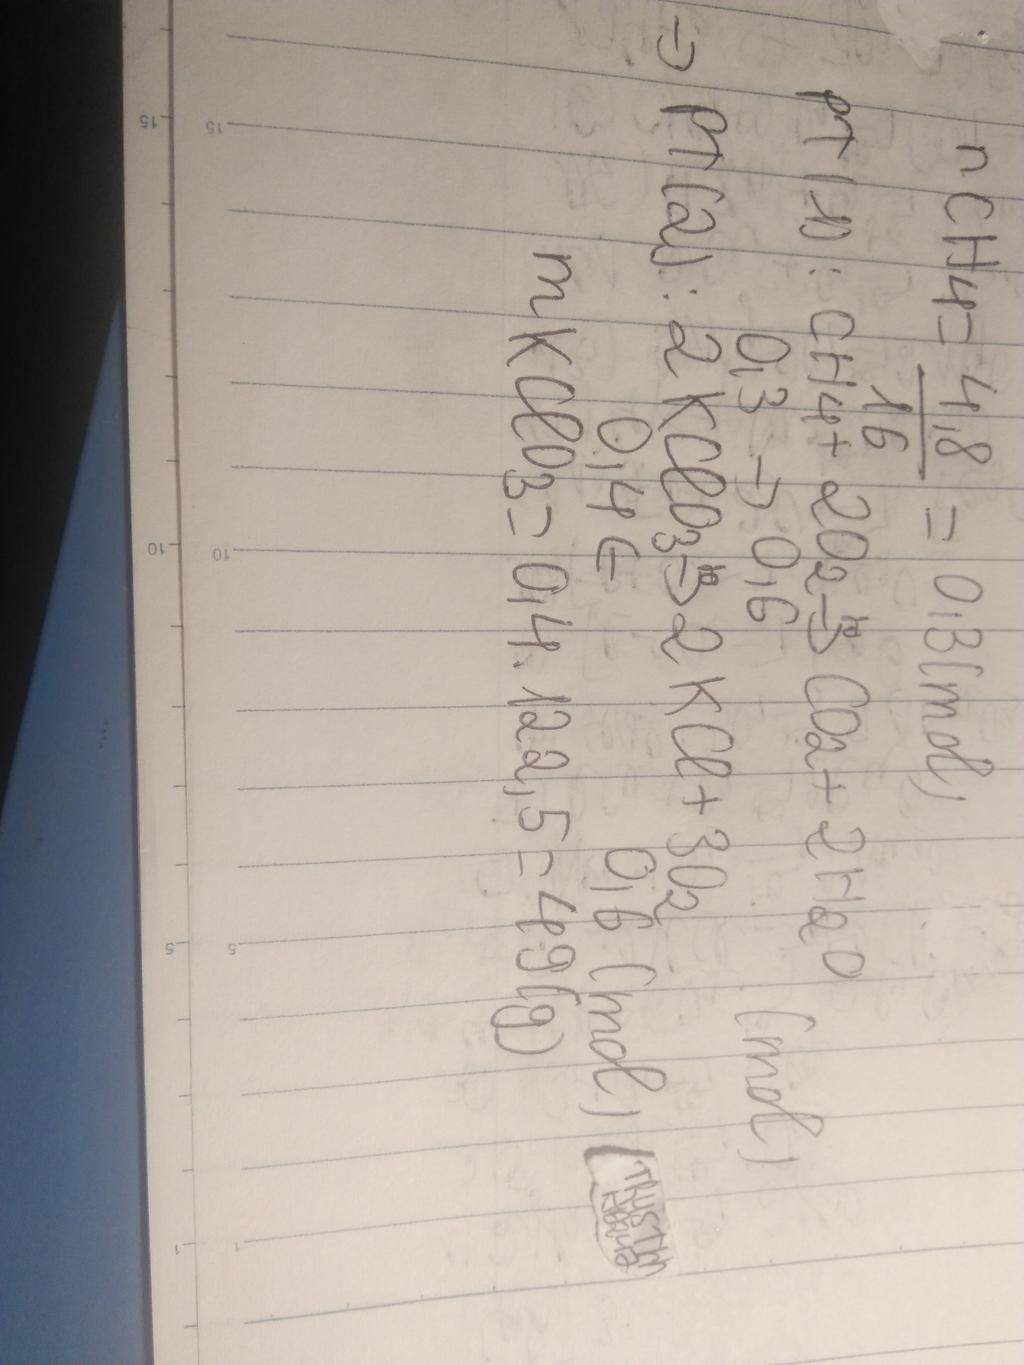 nCH4 = 4,8 / 16 = 0,3 (mol)
PT (1) : CH4 + 2O2 -to-> CO2 + 2H2O
0,3 → 0,6 (mol)
=> PT (2) : 2KClO3 -to-> 2KCl + 3O2
0,4 ← 0,6 (mol)
mKClO3 = 0,4 . 122,5 = 49 (g)
15 10 5 1
15 10 5 1